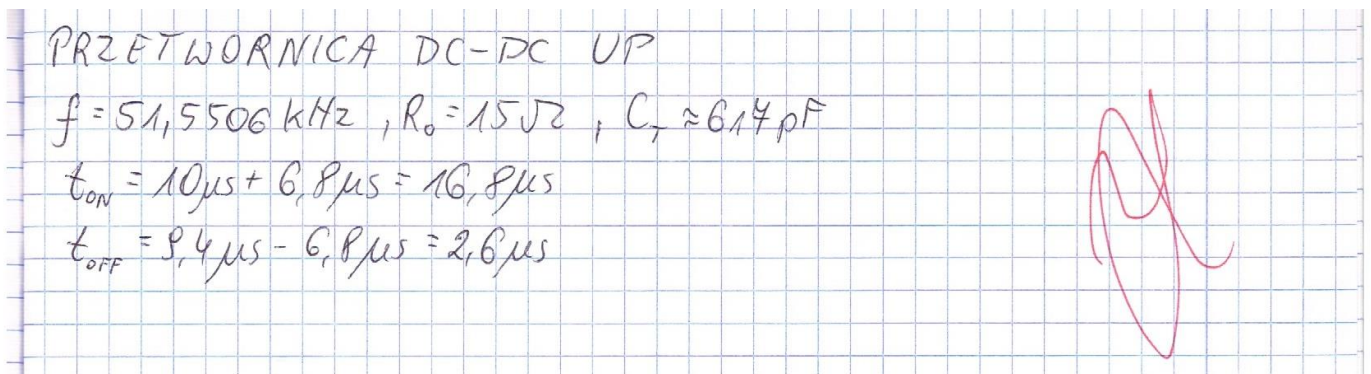 PRZETWORNICA DC-DC UP
f = 51,5506 kHz , R₀ = 15 Ω , C_T ≈ 617 pF
t_ON = 10 μs + 6,8 μs = 16,8 μs
t_OFF = 9,4 μs - 6,8 μs = 2,6 μs